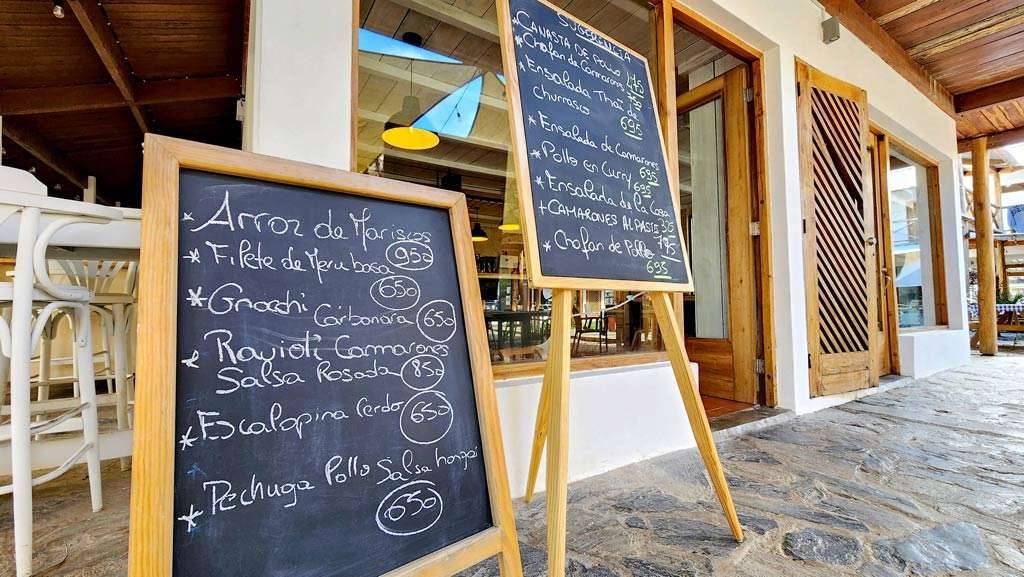 * Arroz de Mariscos
950
* Filete de Meru basa
650
* Gnocchi Carbonara 650
* Ravioli Cammarones
Salsa Rosada 850
* Escalopina Cerdo 650
* Pechuga Pollo Salsa hongai
650
SUGERENCIA
* CANASTA DE POLLO 475
* Chofan de Cammarones
* Ensalada Thai de
churrasco 695
* Ensalada de Cammarones
695
* Pollo en Curry 695
* Ensalada de La Casa
+ CAMARONES AL PASTIS
795
* Chofan de Pollo
695